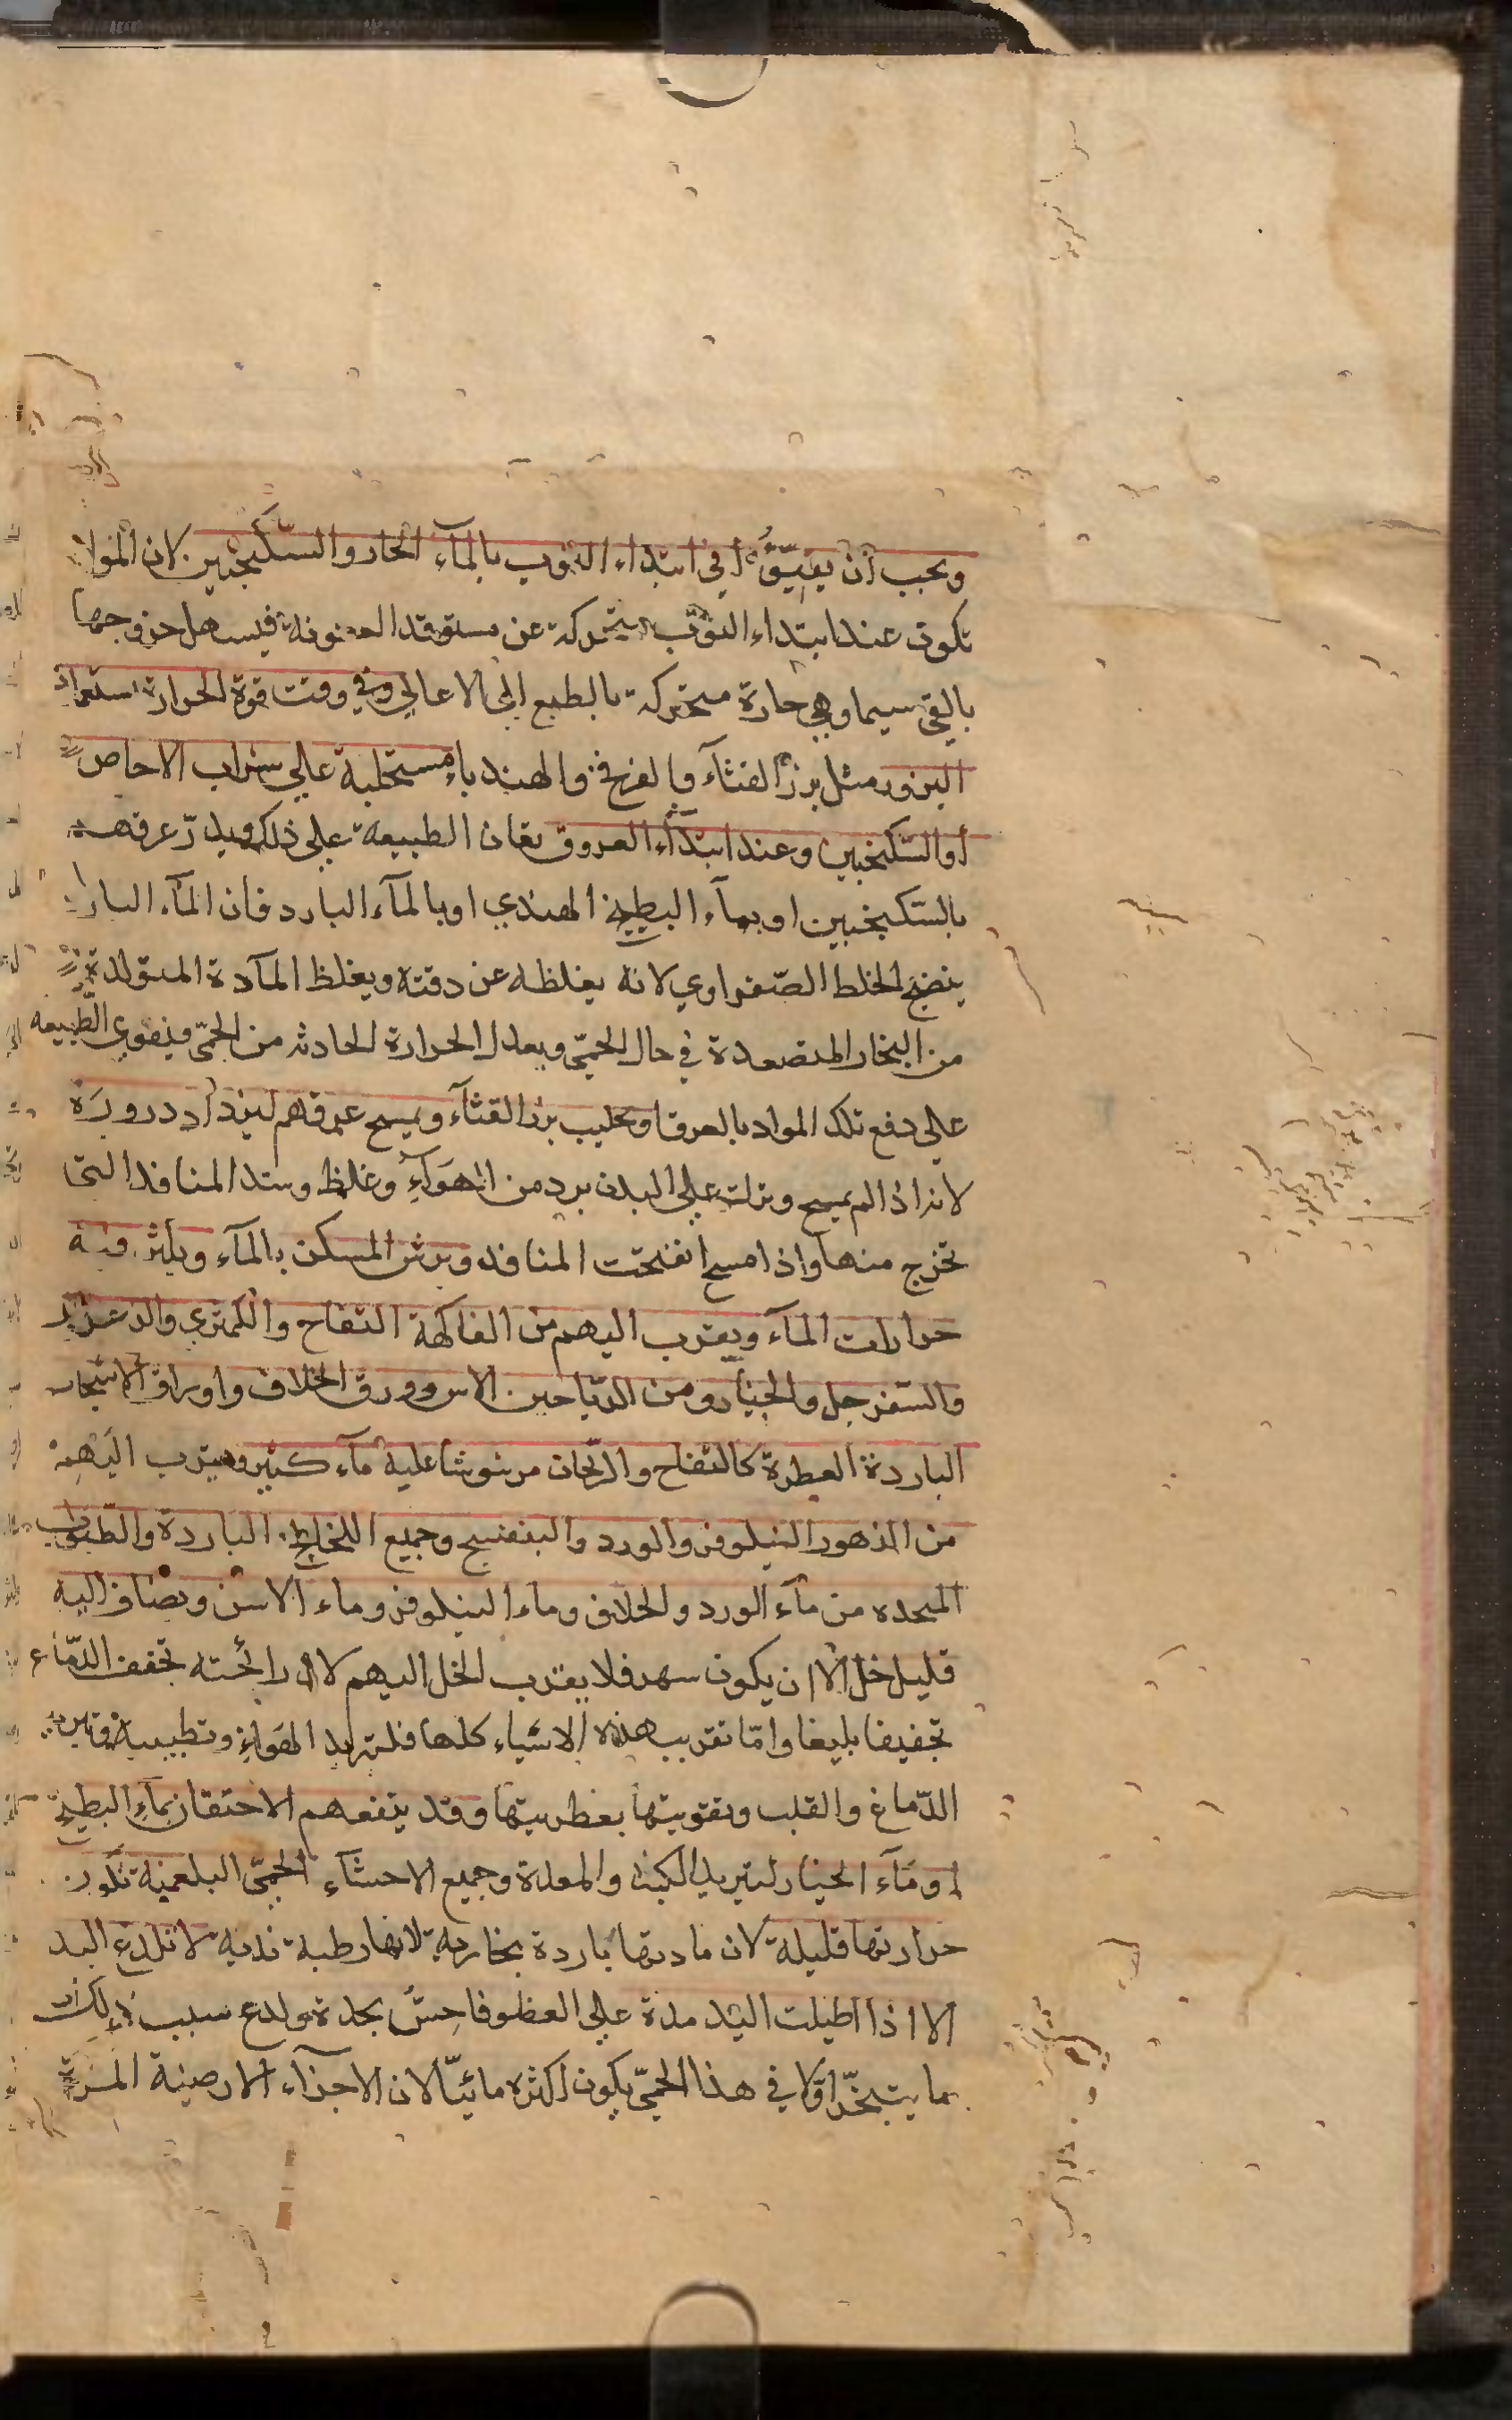 ويجب أن يقيّؤا في ابتداء النوب بالمآء الحار والسكنجبين لان المواد
تكون عند ابتداء النوب متحركة عن مستوقد العفونة فيسهل خروجها
بالقي سيما وهي حارة متحركة بالطبع الى الاعالي وفي وقت قوة الحرارة استعمال
البزور مثل بزر القثآء والفرفخ والهندباء مستحلبة على شراب الاجاص
أو السكنجبين وعند ابتدآء العروق تعان الطبيعة على ذلك ويدرّ عرقهم
بالسكنجبين او بمآء البطيخ الهندي او بالمآء البارد فان المآء البارد
ينضج الخلط الصّفراوي لانه يغلظه عن دقته ويغلظ المآدة المتولدة
من البخار المتصعدة في حال الحمّى ويعدل الحرارة الحادثه من الحمّى فيقوي الطبيعه
على دفع تلك المواد بالعرق او بحليب بزر القثآء ويمسح عرقهم ليزداد دروره
لانه اذا لم يمسح ونزلت على البدن برد من الهوآء وغلظ وسد المنافد التى
تخرج منها واذا مسح انفتحت المنافد ويرش المسكن بالمآء ويكثر فيه
حرارات المآء ويقرب اليهم من الفاكهة التفاح والكمثري والزعرور
والسفرجل والخيار ومن الرياحين الاس وورق الخلاف واوراق الاشجار
الباردة العطرة كالتفاح والريحان مرشوشا عليه مآء كثير ويقرب اليهم
من الزهور النيلوفر والورد والبنفسج وجميع اللخالخ الباردة والطبوب
المتحده من مآء الورد والخلاف وماء النيلوفر وماء الاس ويضاف اليه
قليل خل الا ان يكون سهر فلا يقرب الخل اليهم لان رائحته تجفف الدّماغ
تجفيفا بليغا وامّا تقريب هذه الاشياء كلها فلتبريد الهوآء وتطييبه وتبريد
الدّماغ والقلب وتقويتها بعطريتها وقد ينفعهم الاحتقان بمآء البطيخ
او مآء الخيار لتبريد الكبد والمعدة وجميع الاحشآء الحمّى البلغمية تكون
حرارتها قليلة لان مادتها باردة بخارية لانها رطبة ندية لا تلدع اليد
الا اذا اطيلت اليد مدة على العظو فاحسّ بحدة ولدع سبب ذلك ان
ما يتبخّر اوّلا في هذا الحمّى يكون اكثره مائيّا لان الاجزآء الارضية المرّة